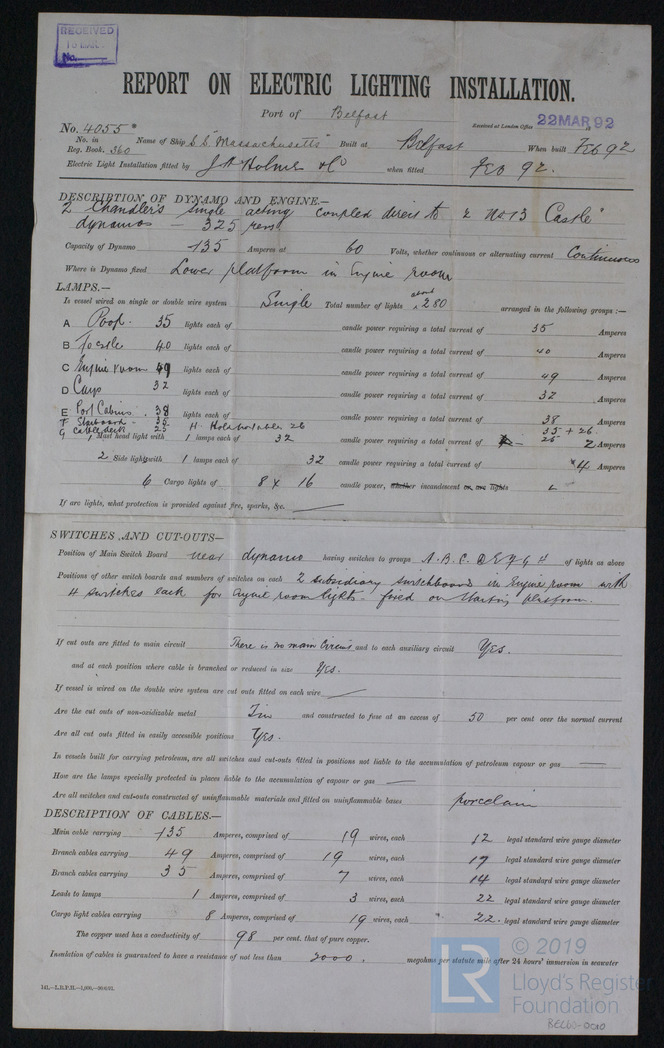 RECEIVED
No.
REPORT ON ELECTRIC LIGHTING INSTALLATION.
Port of Belfast
No. 4055 Received at London Office 22 MAR 92
No. in Reg. Book. 360 Name of Ship S.S. "Massachusetts" Built at Belfast When built Feb 92
Electric Light Installation fitted by J H Holmes & Co when fitted Feb 92.
DESCRIPTION OF DYNAMO AND ENGINE.—
2 Chandler's single acting coupled direct to 2 No 13 "Castle"
dynamos — 325 revs
Capacity of Dynamo 135 Amperes at 60 Volts, whether continuous or alternating current Continuous
Where is Dynamo fixed Lower platform in Engine room
LAMPS.—
Is vessel wired on single or double wire system Single Total number of lights about 280 arranged in the following groups :—
A Poop. 35 lights each of candle power requiring a total current of 35 Amperes
B Focsle 40 lights each of candle power requiring a total current of 40 Amperes
C Engine room 49 lights each of candle power requiring a total current of 49 Amperes
D Cargo 32 lights each of candle power requiring a total current of 32 Amperes
E Port Cabins 38 lights each of candle power requiring a total current of 38 Amperes
F Starboard - 35 35 + 26
G H 26 26
1 Mast head light with 1 lamps each of 32 candle power requiring a total current of 2 Amperes
2 Side lights with 1 lamps each of 32 candle power requiring a total current of 4 Amperes
6 Cargo lights of 8 x 16 candle power, whether incandescent or arc lights
If arc lights, what protection is provided against fire, sparks, &c. —
SWITCHES AND CUT-OUTS—
Position of Main Switch Board near dynamo having switches to groups A. B. C. D E F G H of lights as above
Positions of other switch boards and numbers of switches on each 2 subsidiary switchboards in Engine room with
4 switches each for Engine room lights - fixed on Starting platform.
If cut outs are fitted to main circuit There is no main Circuit and to each auxiliary circuit Yes.
and at each position where cable is branched or reduced in size Yes.
If vessel is wired on the double wire system are cut outs fitted on each wire —
Are the cut outs of non-oxidizable metal Tin and constructed to fuse at an excess of 50 per cent over the normal current
Are all cut outs fitted in easily accessible positions Yes.
In vessels built for carrying petroleum, are all switches and cut-outs fitted in positions not liable to the accumulation of petroleum vapour or gas —
How are the lamps specially protected in places liable to the accumulation of vapour or gas —
Are all switches and cut-outs constructed of uninflammable materials and fitted on uninflammable bases porcelain
DESCRIPTION OF CABLES.—
Main cable carrying 135 Amperes, comprised of 19 wires, each 12 legal standard wire gauge diameter
Branch cables carrying 49 Amperes, comprised of 19 wires, each 17 legal standard wire gauge diameter
Branch cables carrying 35 Amperes, comprised of 7 wires, each 14 legal standard wire gauge diameter
Leads to lamps 1 Amperes, comprised of 3 wires, each 22 legal standard wire gauge diameter
Cargo light cables carrying 8 Amperes, comprised of 19 wires, each 22. legal standard wire gauge diameter
The copper used has a conductivity of 98 per cent. that of pure copper.
Insulation of cables is guaranteed to have a resistance of not less than 2000. megohms per statute mile after 24 hours' immersion in seawater
LR
© 2019
Lloyd's Register
Foundation